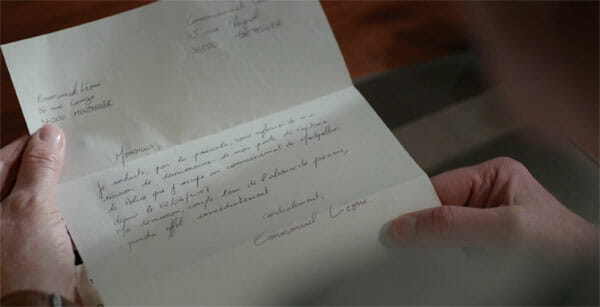 Commissariat
45 rue
34000 MONTPELLIER
Emmanuel Léoni
36 rue
34000 MONTPELLIER
Monsieur,
Je souhaite, par la présente, vous informer de ma
décision de démissionner de mon poste de capitaine
de Police que j'occupe au commissariat de Montpellier
depuis le 02/04/2007
Ma démission, compte tenu de l'absence de préavis,
prendra effet immédiatement.
Cordialement,
Emmanuel Léoni